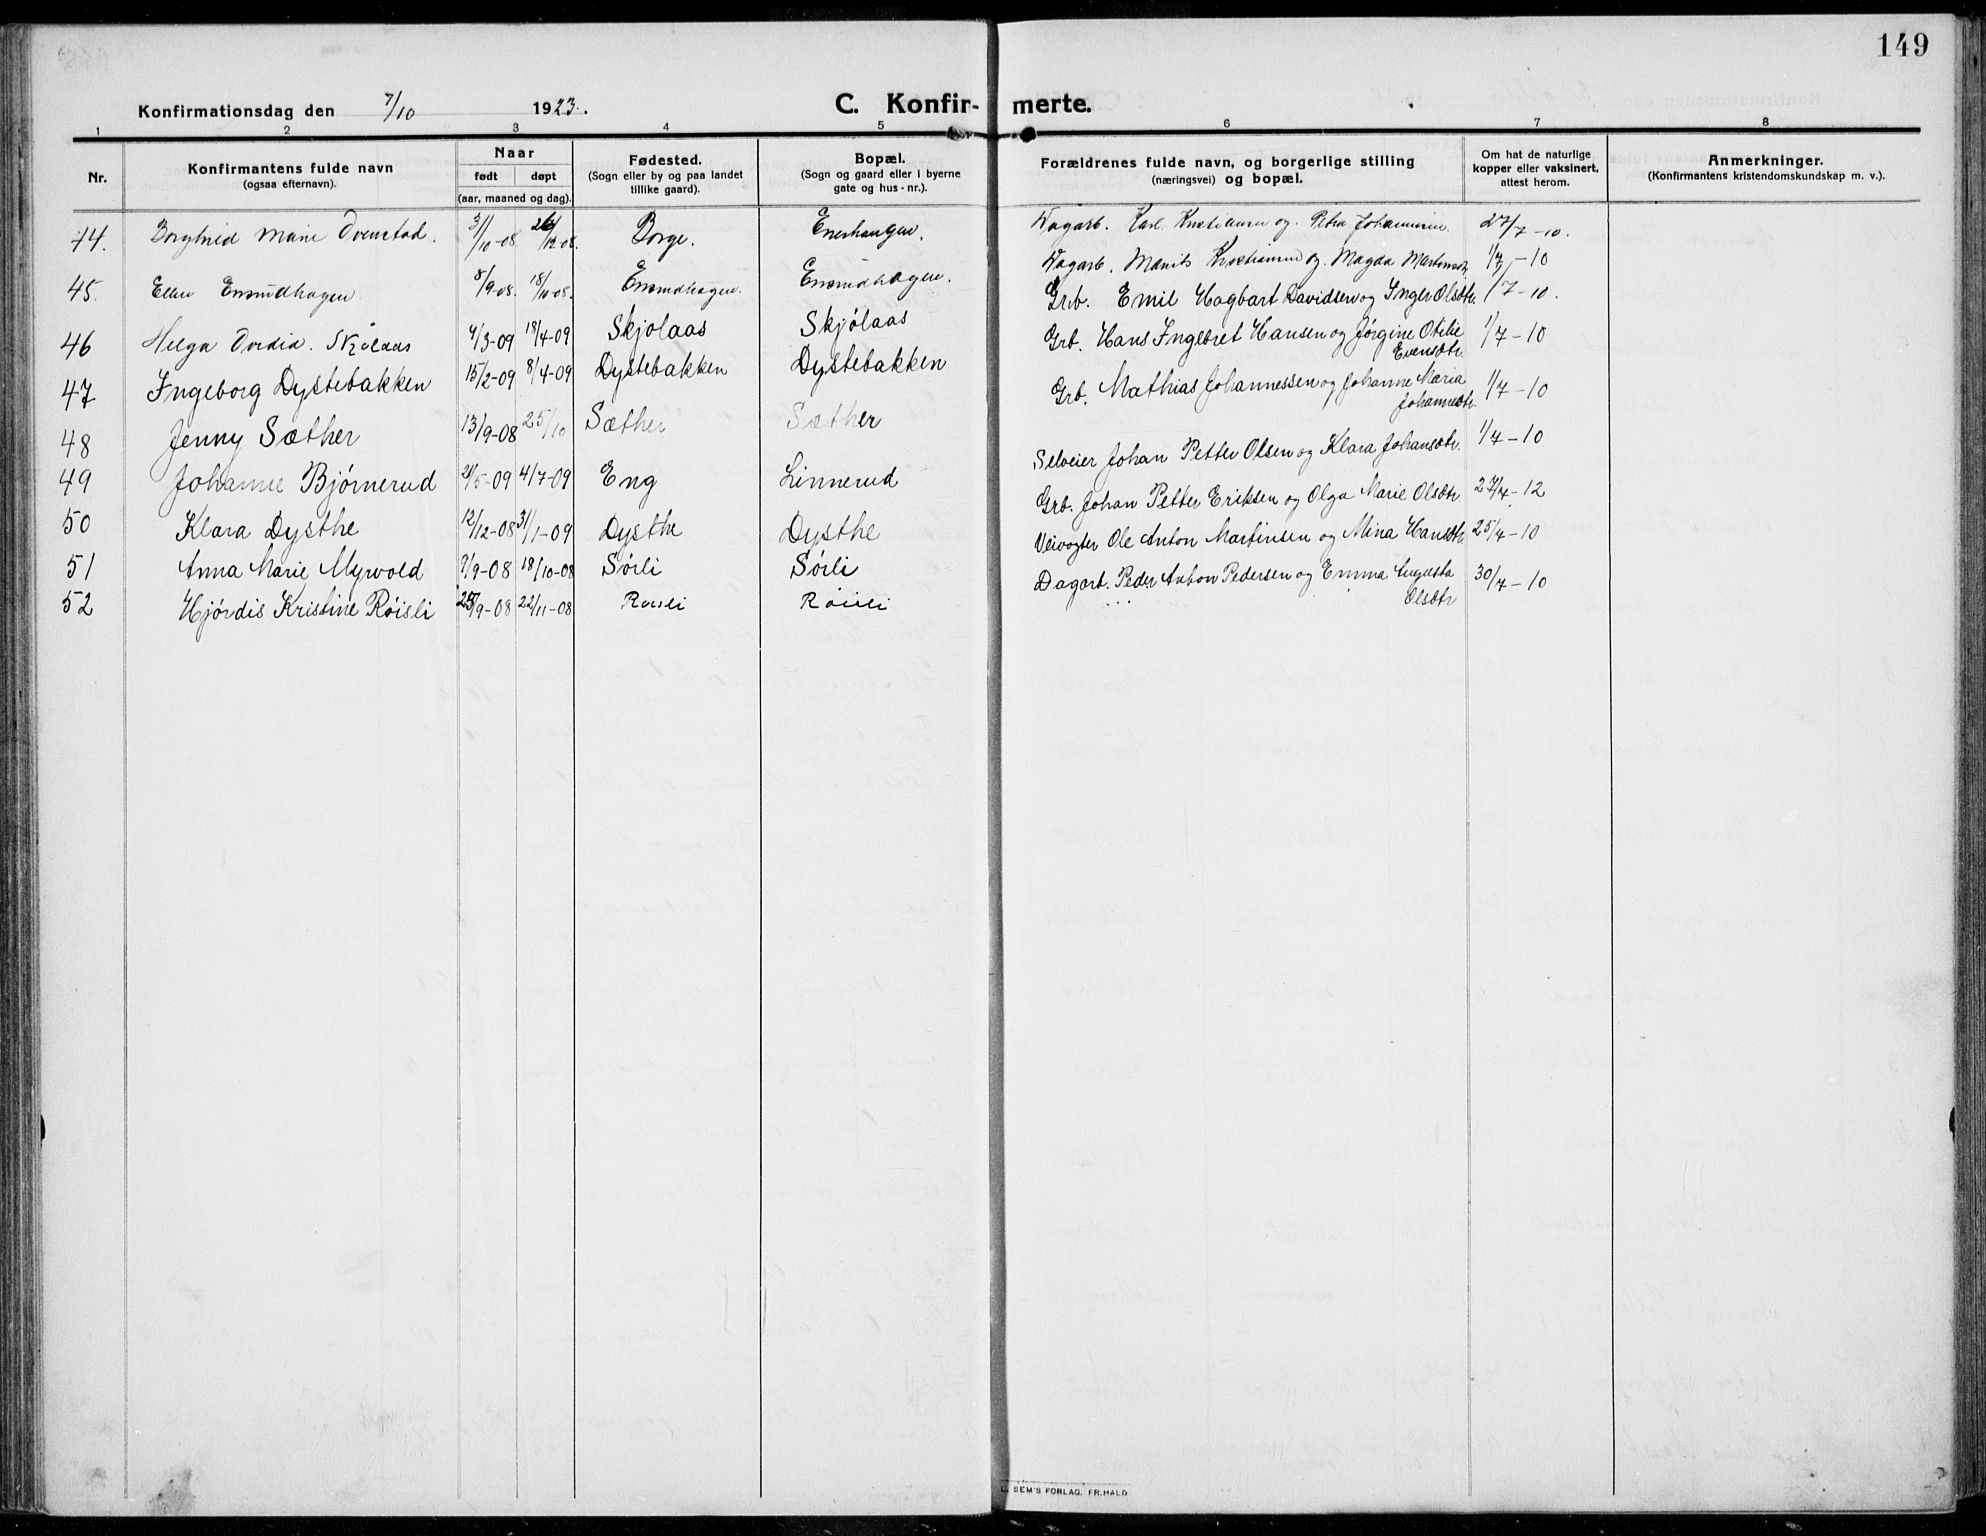 149
Konfirmationsdag den 7/10 1923.
C. Konfir-merte.
1 2 3 4 5 6 7 8
Nr.
Konfirmantens fulde navn
(ogsaa efternavn).
Naar
født døpt
(aar, maaned og dag).
Fødested.
(Sogn eller by og paa landet
tillike gaard).
Bopæl.
(Sogn og gaard eller i byerne
gate og hus-nr.).
Forældrenes fulde navn, og borgerlige stilling
(næringsvei) og bopæl.
Om hat de naturlige
kopper eller vaksinert,
attest herom.
Anmerkninger.
(Konfirmantens kristendomskundskap m. v.).
44. Borghild Marie /10-08. /12-08. Borge. Enerhaugen. Dagarb. Karl Kristiansen og Petra Johannesen 27/7-10.
45. Ellen 8/9-08. 18/10-08. Dagarb. Kristiansen og Magda 1/7-10
46 Helga Skjølaas 4/3-09 18/4-09 Skjolaas Skjølaas Grb. Emil Hagbart Davidsen og Inger Olsdtr. 1/7-10.
47 Ingeborg Dystebakken 15/2-09 8/4-09 Dystebakken Dystebakken Grb. Hans Ingebret Hansen og Jørgine Otilie
Evensdtr. 1/7-10
48 Jenny Sæther 13/9-08 25/10 Sæther Sæther Grb. Mathias Johannessen og Johanne Maria
Johannesdtr. 1/7-10
49 Johanne Bjørnerud 2/5-09 4/7-09 Eng Linnerud Selveier Johan Petter Olsen og Klara Johansdtr. 1/7-10
50 Klara Dysthe 12/12-08 31/1-09 Dysthe Dysthe Grb. Johan Petter Eriksen og Olga Marie Olsdtr. 27/7-12
51 Anna Marie Myrvold 9/9-08 18/10-08 Sørli Sørli Veivogter Ole Anton Martinsen og Mina Hansdtr. 25/7-10
52 Hjørdis Kristine Røisli 25/9-08 22/11-08 Røisli Røisli Dagarb. Peder Anton Pedersen og Emma Augusta
Olsdtr 30/7-10
SEM'S FORLAG, FR.HALD